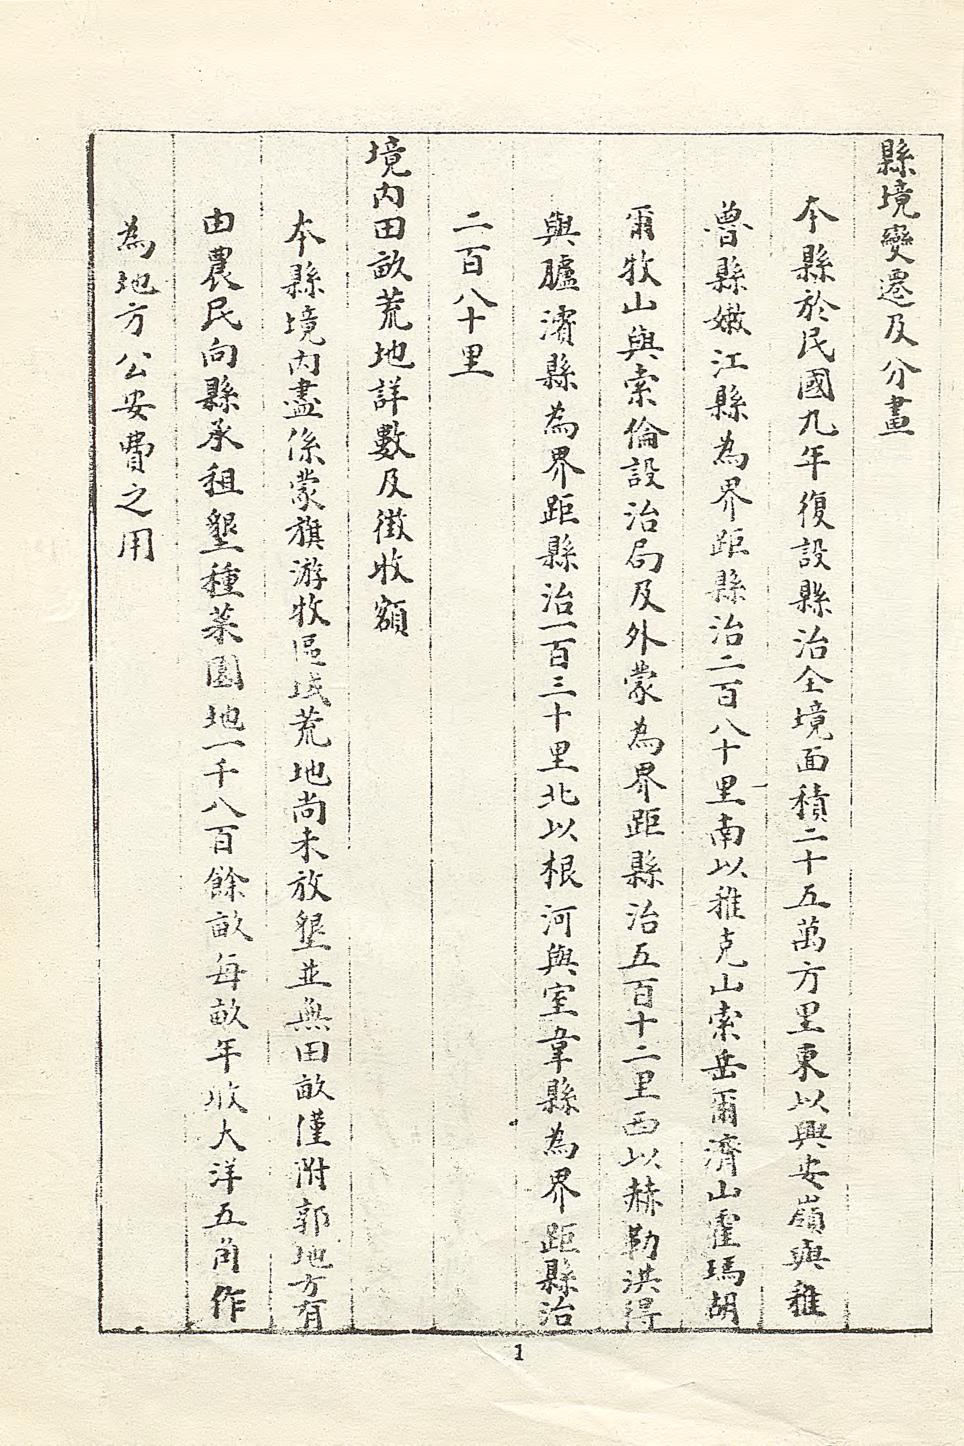 縣境變遷及分畫
本縣於民國九年復設縣治全境面積二十五萬方里東以興安嶺與雅
魯縣嫩江縣為界距縣治二百八十里南以雅克山索岳爾濟山霍瑪胡
爾牧山與索倫設治局及外蒙為界距縣治五百十二里西以赫勒洪得
與臚濱縣為界距縣治一百三十里北以根河與室韋縣為界距縣治
二百八十里
境內田畝荒地詳數及徵收額
本縣境內盡係蒙旗游牧區域荒地尚未放墾並無田畝僅附郭地方有
由農民向縣承租墾種菜園地一千八百餘畝每畝年收大洋五角作
為地方公安費之用
1